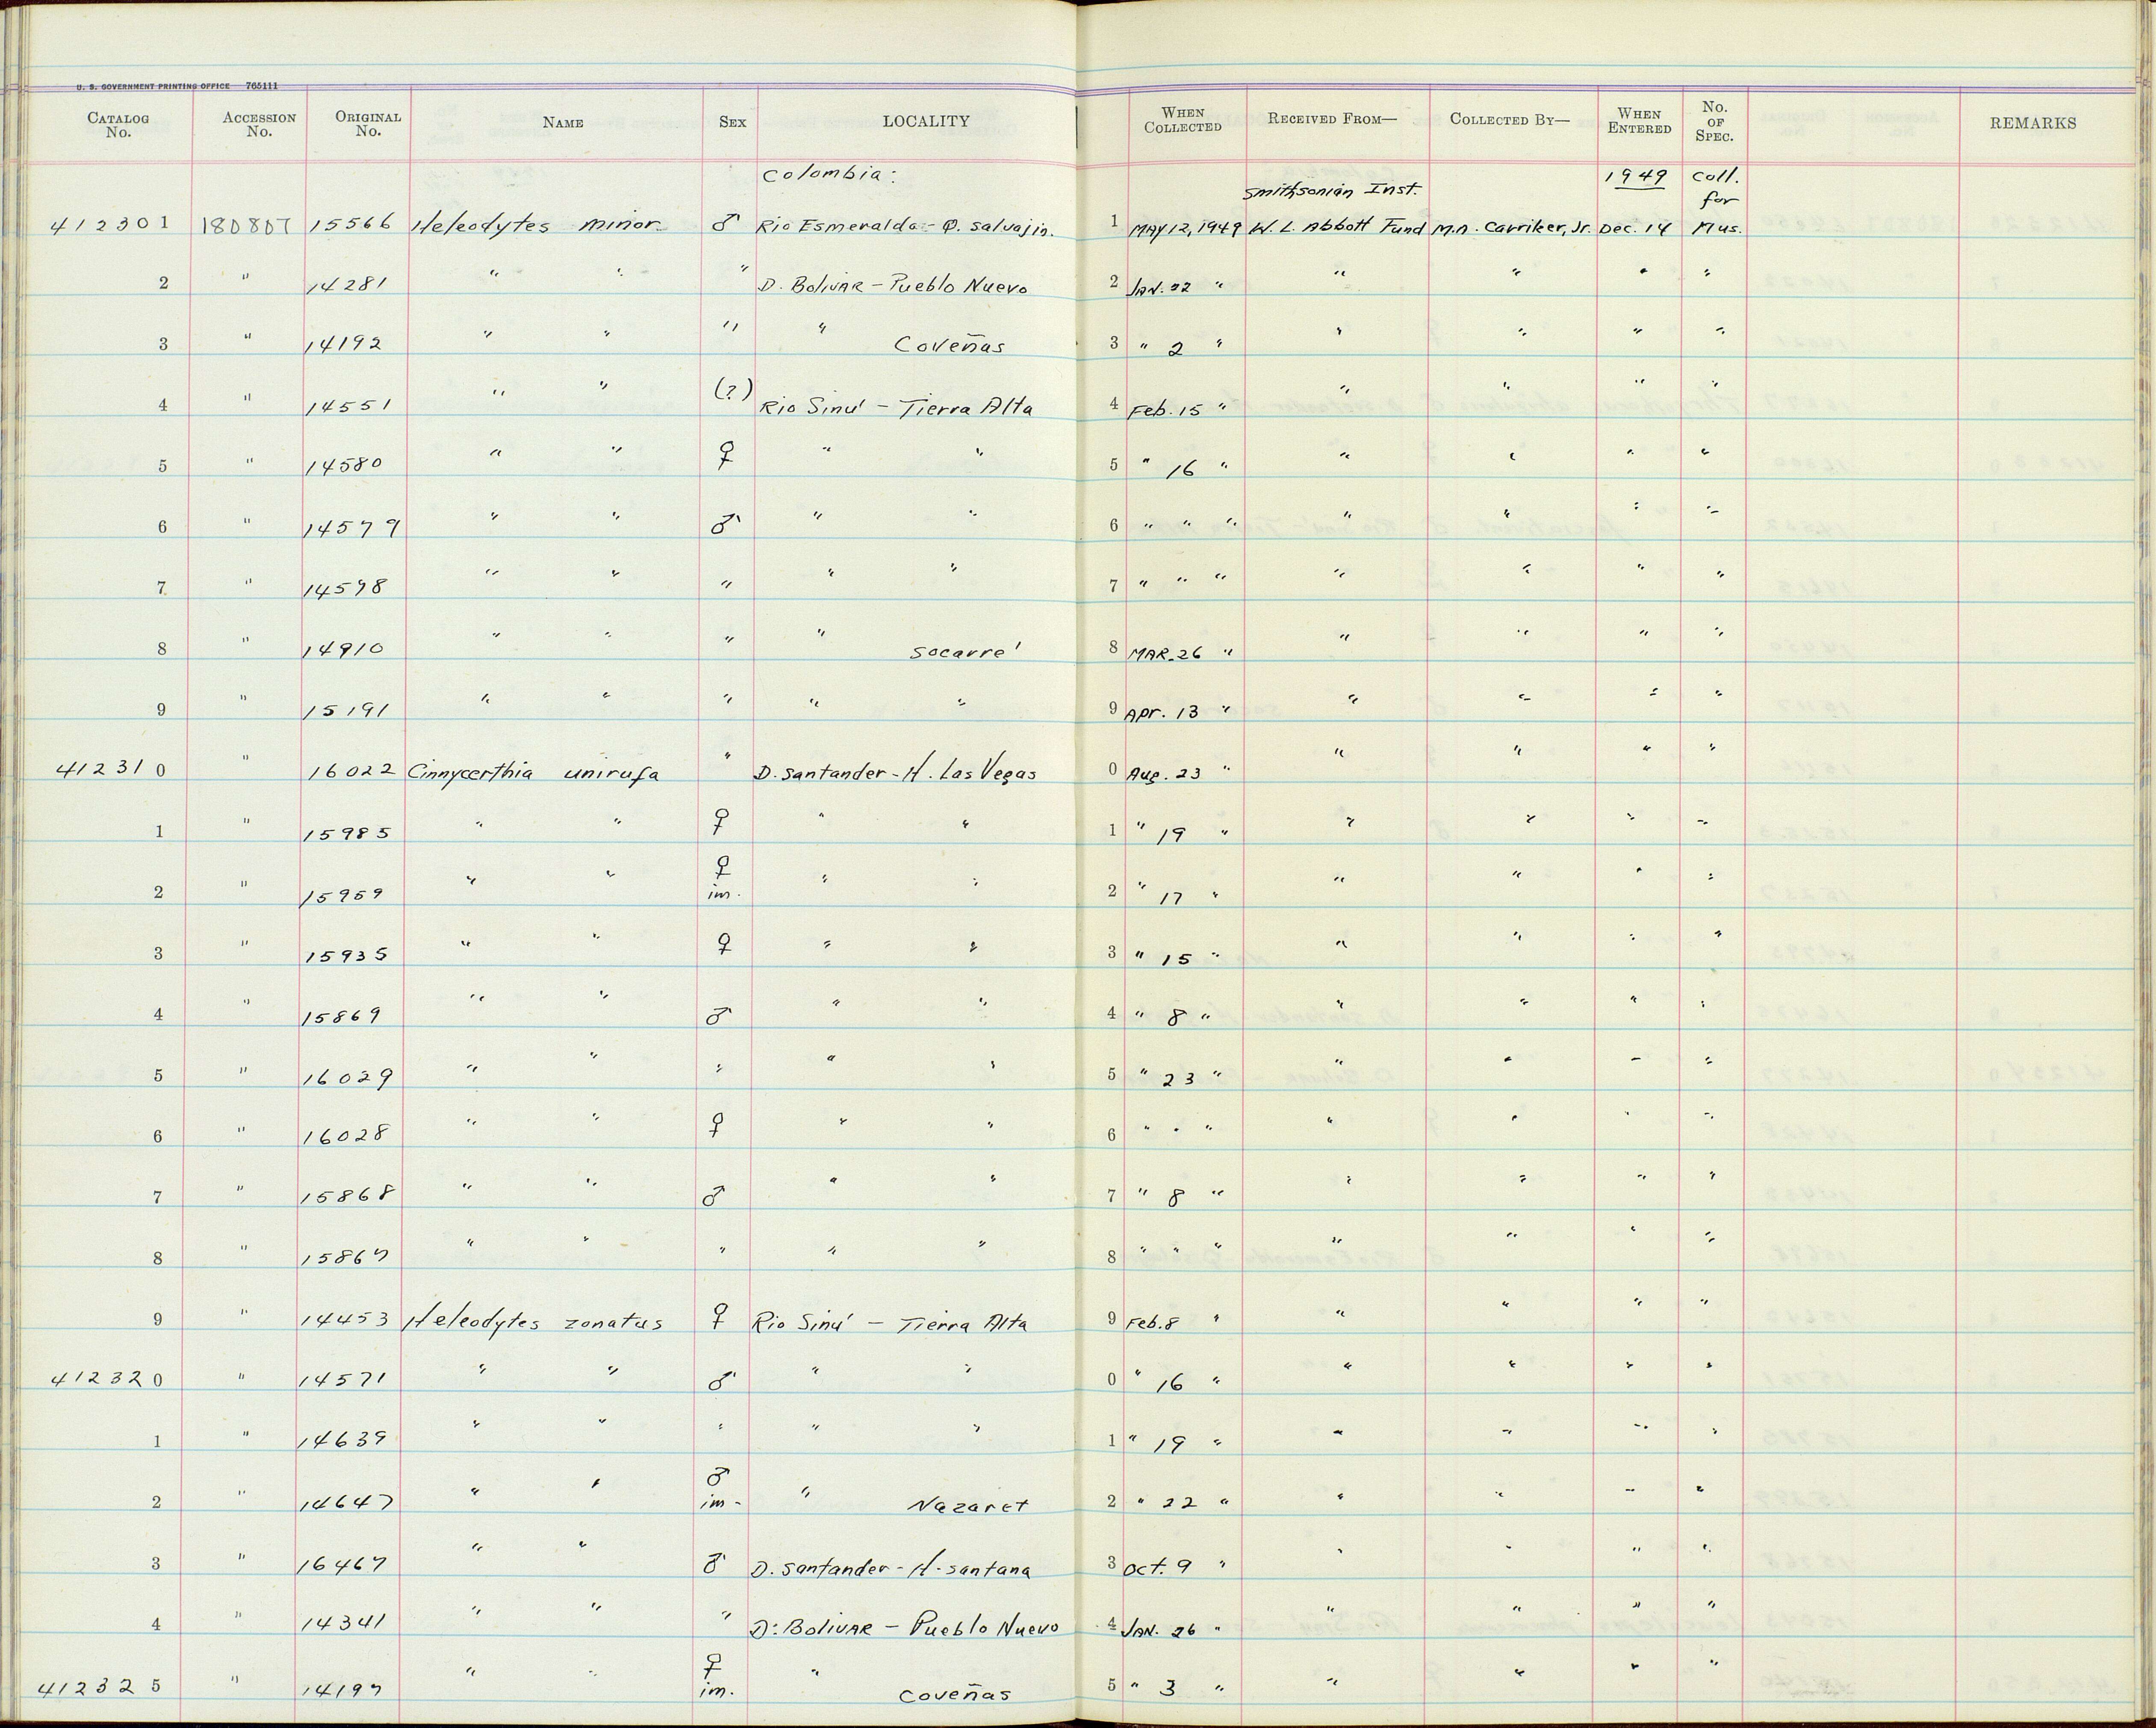 U. S. GOVERNMENT PRINTING OFFICE 765111
CATALOG No. ACCESSION No. ORIGINAL No. NAME SEX LOCALITY WHEN COLLECTED RECEIVED FROM— COLLECTED BY— WHEN ENTERED No. OF SPEC. REMARKS
Colombia: 1949 Coll.
Smithsonian Inst. for
412301 180807 15566 Heleodytes minor ♂ Rio Esmeralda - Q. Salvajin. 1 MAY 12, 1949 W. L. Abbott Fund M.A. Carriker, Jr. Dec. 14 Mus.
2 " 14281 " " " D. Bolivar - Pueblo Nuevo 2 Jan. 22 " " " " "
3 " 14192 " " " " Coveñas 3 " 2 " " " " "
4 " 14551 " " (?) Rio Sinú - Tierra Alta 4 Feb. 15 " " " " "
5 " 14580 " " ♀ " " 5 " 16 " " " " "
6 " 14579 " " ♂ " " 6 " " " " " " "
7 " 14598 " " " " " 7 " " " " " " "
8 " 14910 " " " " Socarré 8 MAR. 26 " " " " "
9 " 15191 " " " " " 9 Apr. 13 " " " " "
412310 " 16022 Cinnycerthia unirufa " D. Santander - H. Las Vegas 0 Aug. 23 " " " " "
1 " 15985 " " ♀ " " 1 " 19 " " " " "
2 " 15959 " " ♀ im. " " 2 " 17 " " " " "
3 " 15935 " " ♀ " " 3 " 15 " " " " "
4 " 15869 " " ♂ " " 4 " 8 " " " " "
5 " 16029 " " " " " 5 " 23 " " " " "
6 " 16028 " " ♀ " " 6 " " " " " " "
7 " 15868 " " ♂ " " 7 " 8 " " " " "
8 " 15867 " " " " " 8 " " " " " " "
9 " 14453 Heleodytes zonatus ♀ Rio Sinú - Tierra Alta 9 Feb. 8 " " " " "
412320 " 14571 " " ♂ " " 0 " 16 " " " " "
1 " 14639 " " " " " 1 " 19 " " " " "
2 " 14647 " " ♂ im - " Nazaret 2 " 22 " " " " "
3 " 16467 " " ♂ D. Santander - H. Santana 3 Oct. 9 " " " " "
4 " 14341 " " " D. Bolivar - Pueblo Nuevo 4 Jan. 26 " " " " "
412325 " 14197 " " ♀ im. " Coveñas 5 " 3 " " " " "